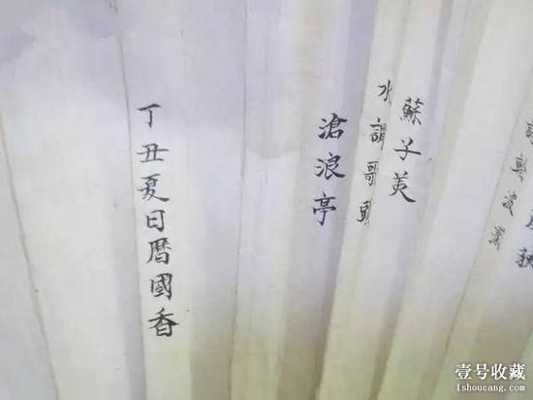 蘇子美
水調歌頭
滄浪亭
丁丑夏日暦國香
壹号收藏
1shoucang.com